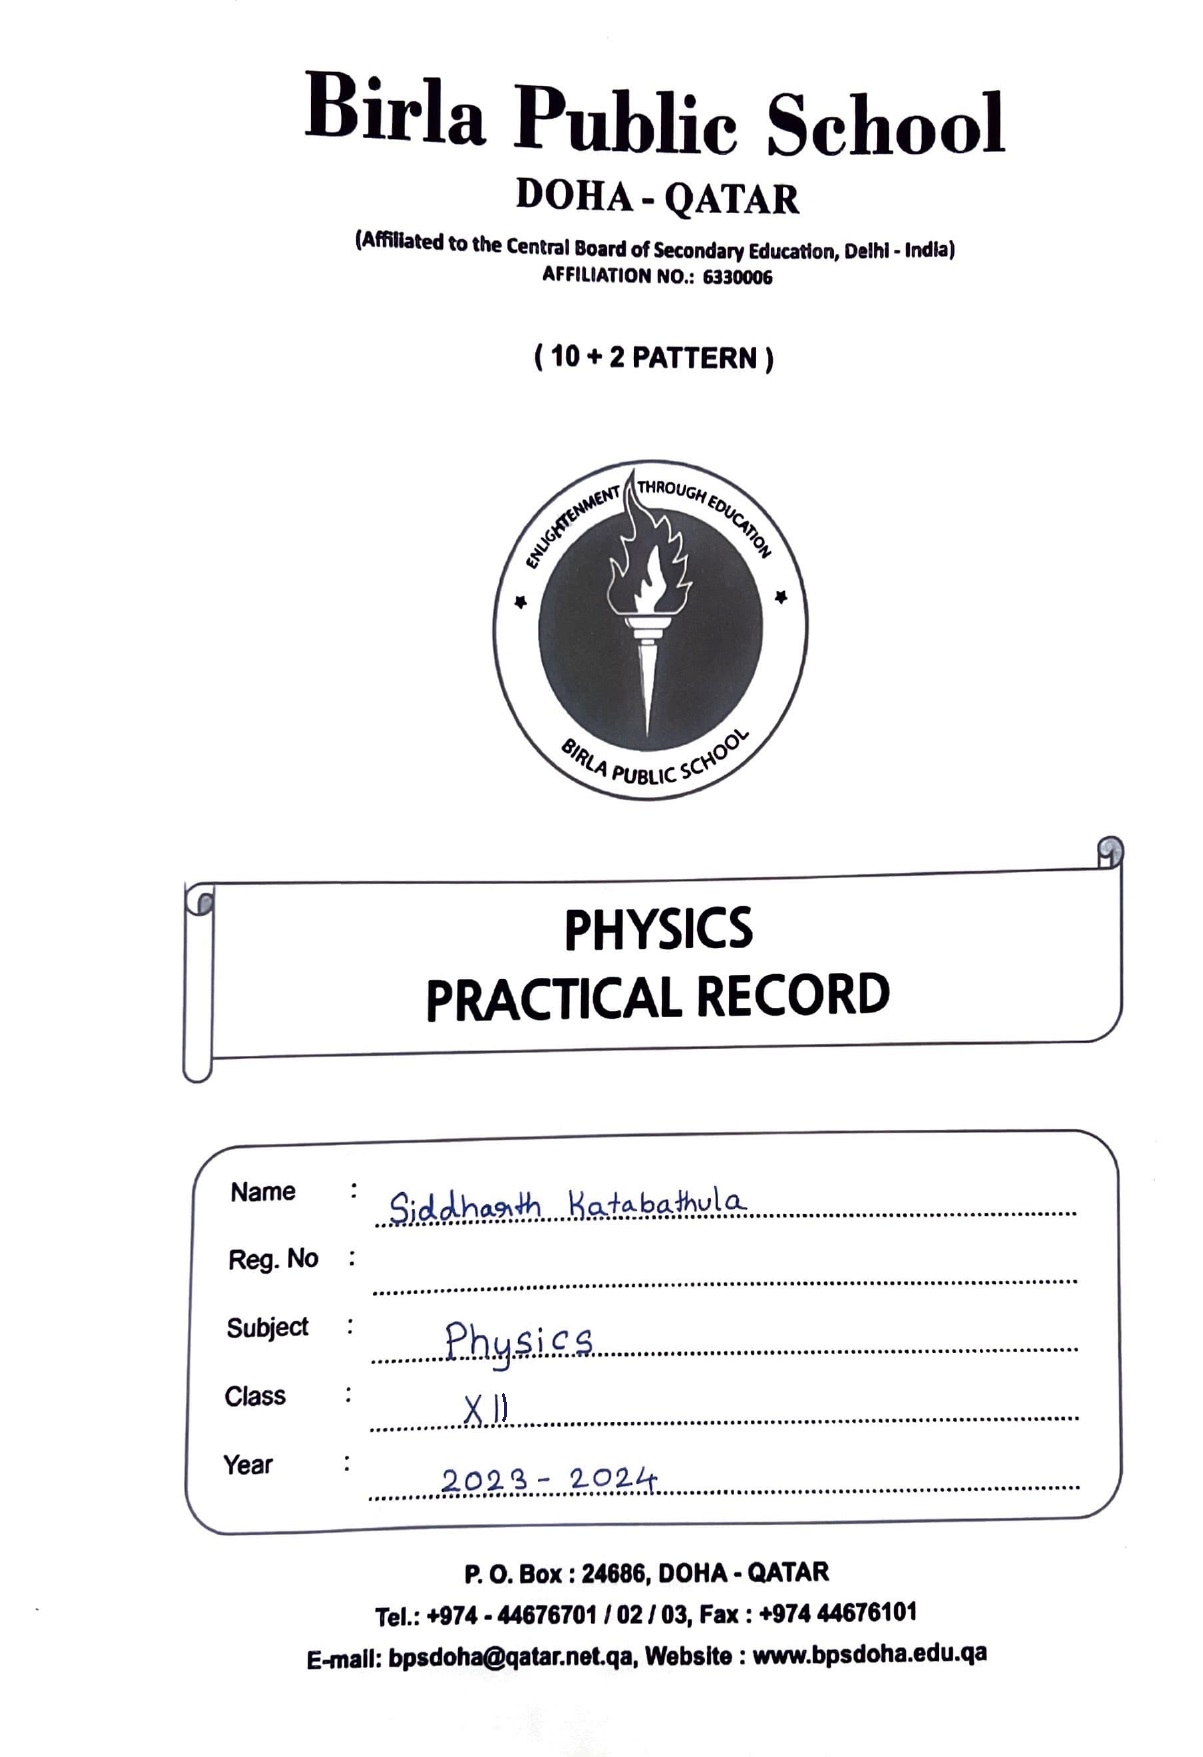 Birla Public School
DOHA - QATAR
(Affiliated to the Central Board of Secondary Education, Delhi - India)
AFFILIATION NO.: 6330006
( 10 + 2 PATTERN )
ENLIGHTENMENT THROUGH EDUCATION
BIRLA PUBLIC SCHOOL
PHYSICS
PRACTICAL RECORD
Name : Siddharth Katabathula
Reg. No :
Subject : Physics
Class : XII
Year : 2023 - 2024
P. O. Box : 24686, DOHA - QATAR
Tel.: +974 - 44676701 / 02 / 03, Fax : +974 44676101
E-mail: bpsdoha@qatar.net.qa, Website : www.bpsdoha.edu.qa